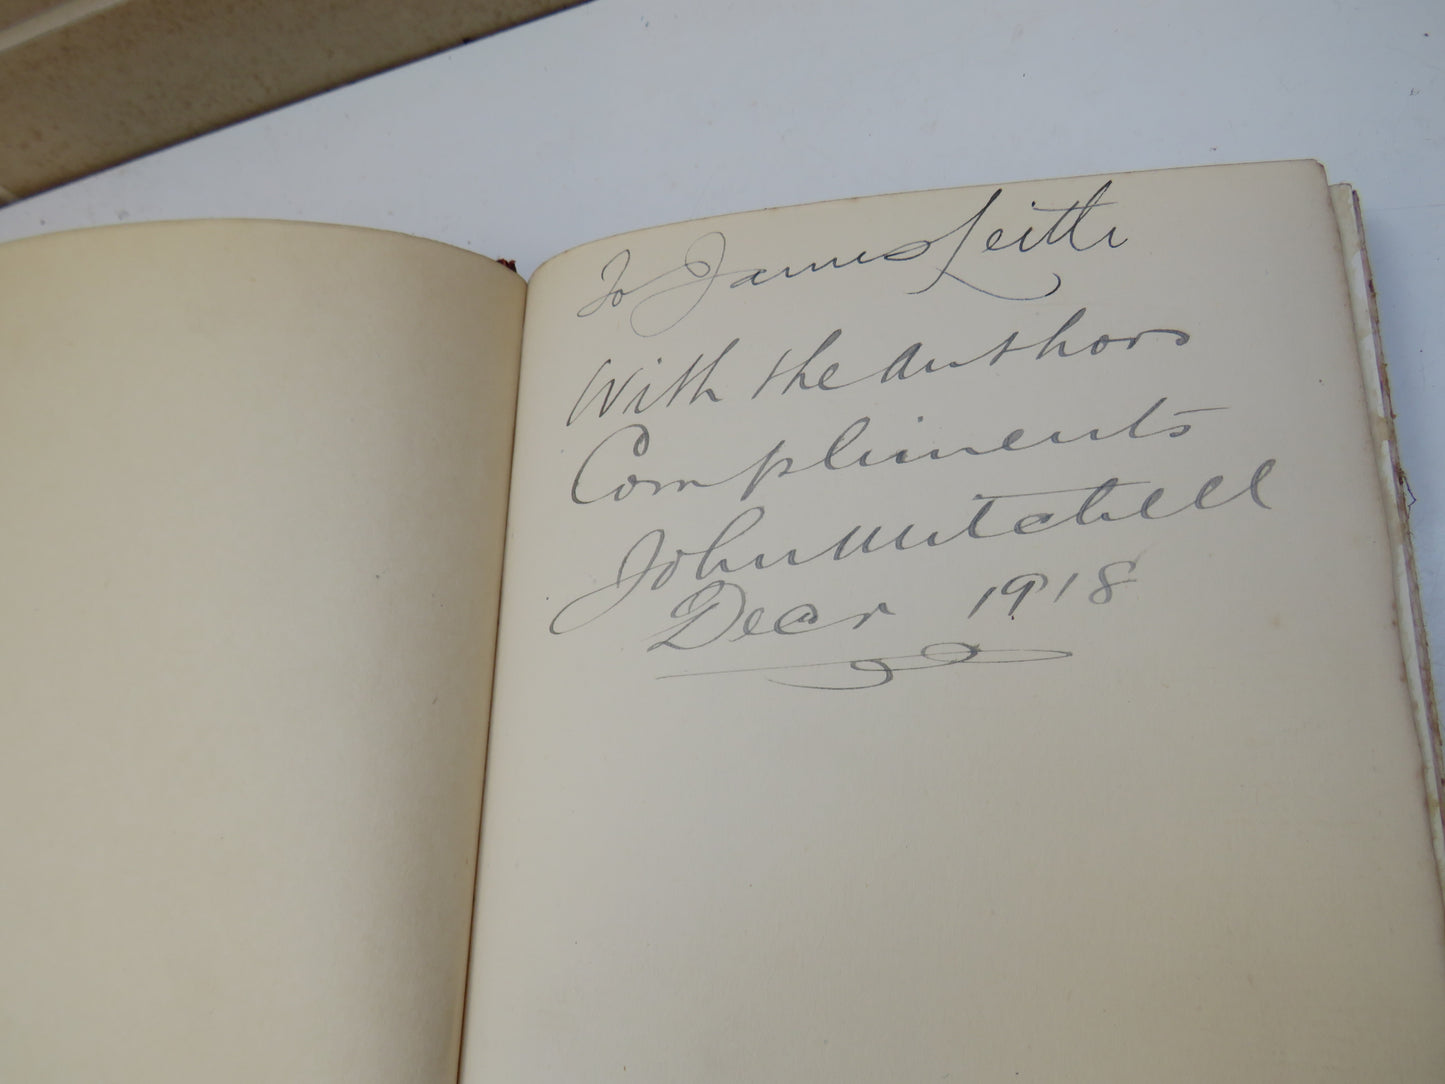 To James Leith
With the authors
Compliments
John Mitchell
Decr 1918